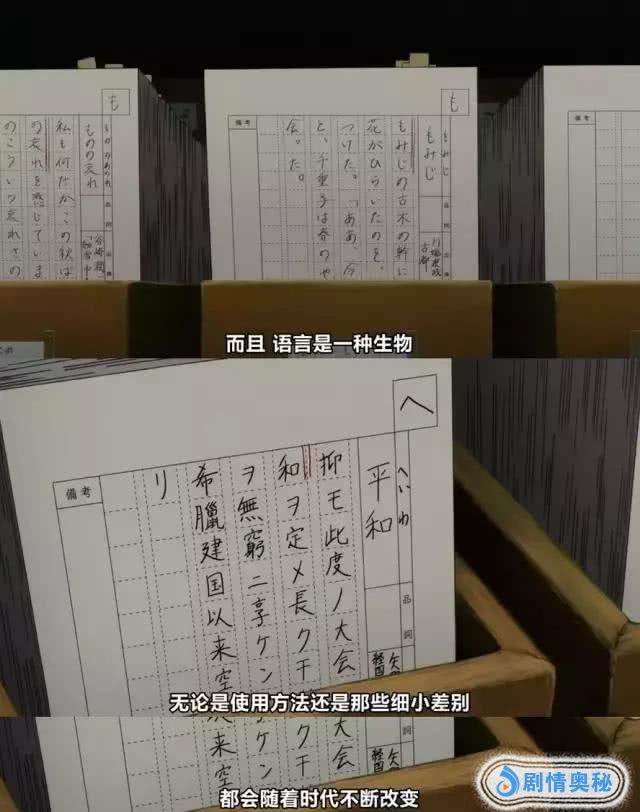 も
もののあわれ
ものの哀れ
私も何だかこの秋ば
の哀れを感じていま
のこういう哀れさの
も
もみじ
もみじ
品詞
川端康成
古都
もみじの古木の幹に
花がひらいたのを、
つけた。「ああ、今
と、千重子は春のや
会った。
備考
備考
而且 语言是一种生物
へ
へいわ
平和
品詞
抑モ此度ノ大会
和ヲ定メ長ク
ヲ無窮ニ享ケン
希臘建国以来空
リ
備考
无论是使用方法还是那些细小差别
大会
ケン
来空
都会随着时代不断改变
剧情奥秘